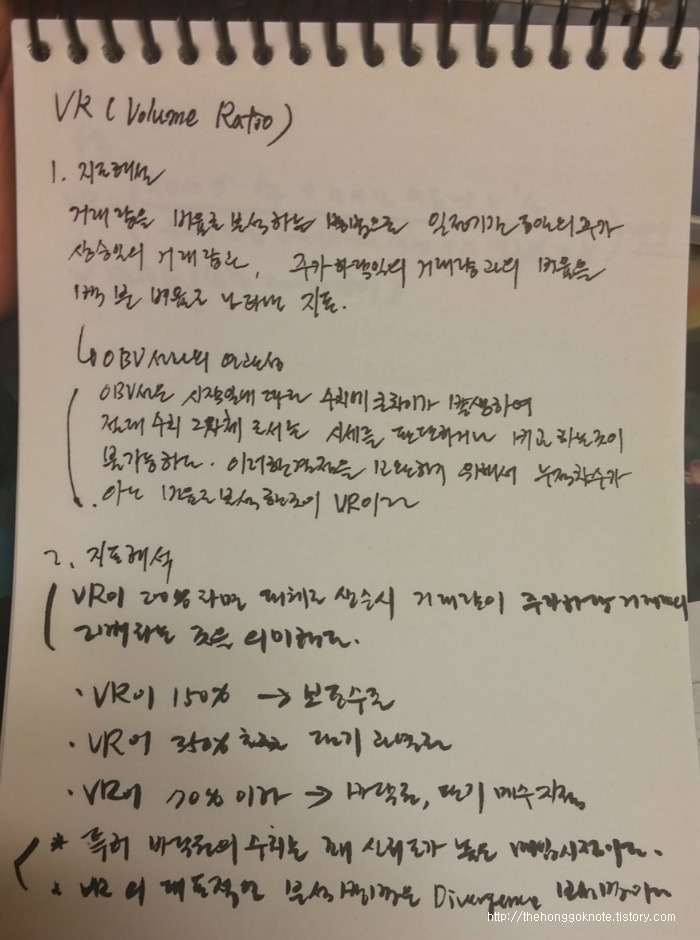 VR ( Volume Ratio )
1. 지표해설
거래량을 비율로 분석하는 방법으로 일정기간동안의 주가
상승일의 거래량과, 주가하락일의 거래량과의 비율을
백분비율로 나타낸 지표.
OBV선과의 연관성
OBV선은 시작일에 따라 수치에 큰차이가 발생하여
절대수치 그자체로서는 시세를 판단하거나 비교하는것이
불가능하다. 이러한결점을 보완하기 위해서 누적차수가
아닌 비율로 분석한것이 VR이다
2. 지표해석
VR이 200%라면 대체로 상승시 거래량이 주가하락거래량의
2배라는 것을 의미한다.
· VR이 150% → 보통수준
· VR이 350% 초과 단기 과열권
· VR이 70% 이하 → 바닥권, 단기 매수지점
* 특히 바닥권의 수치는 꽤 신뢰도가 높은 매입시점이다.
* VR의 대표적인 분석방법은 Divergence
http://thehonggoknote.tistory.com